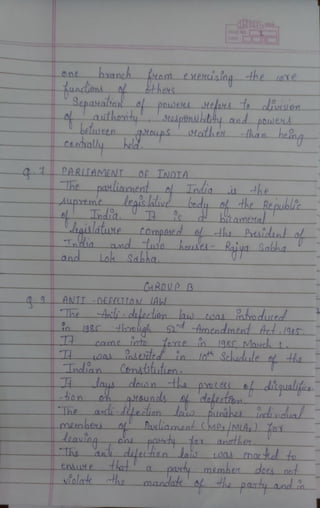 one branch from exercising the core
functions of others
Separation of powers refers to division
of authority, responsibility and powers
between groups rather than being
centrally held.
Q.7 PARLIAMENT OF INDIA
The parliament of India is the
supreme legislative body of the Republic
of India. It is a bicameral
legislature composed of the President of
India and two houses- Rajya Sabha
and Lok Sabha.
GROUP B
Q.9 ANTI-DEFECTION LAW
The Anti-defection law was introduced
in 1985 through 52nd Amendment Act, 1985.
It came into force in 1985, March 1.
It was inserted in 10th Schedule of the
Indian Constitution.
It lays down the process of disqualifica-
tion on grounds of defection.
The anti-defection law punishes individual
members of Parliament (MPs/MLAs) for
leaving one party for another.
The anti defection law was enacted to
ensure that a party member does not
violate the mandate of the party and in